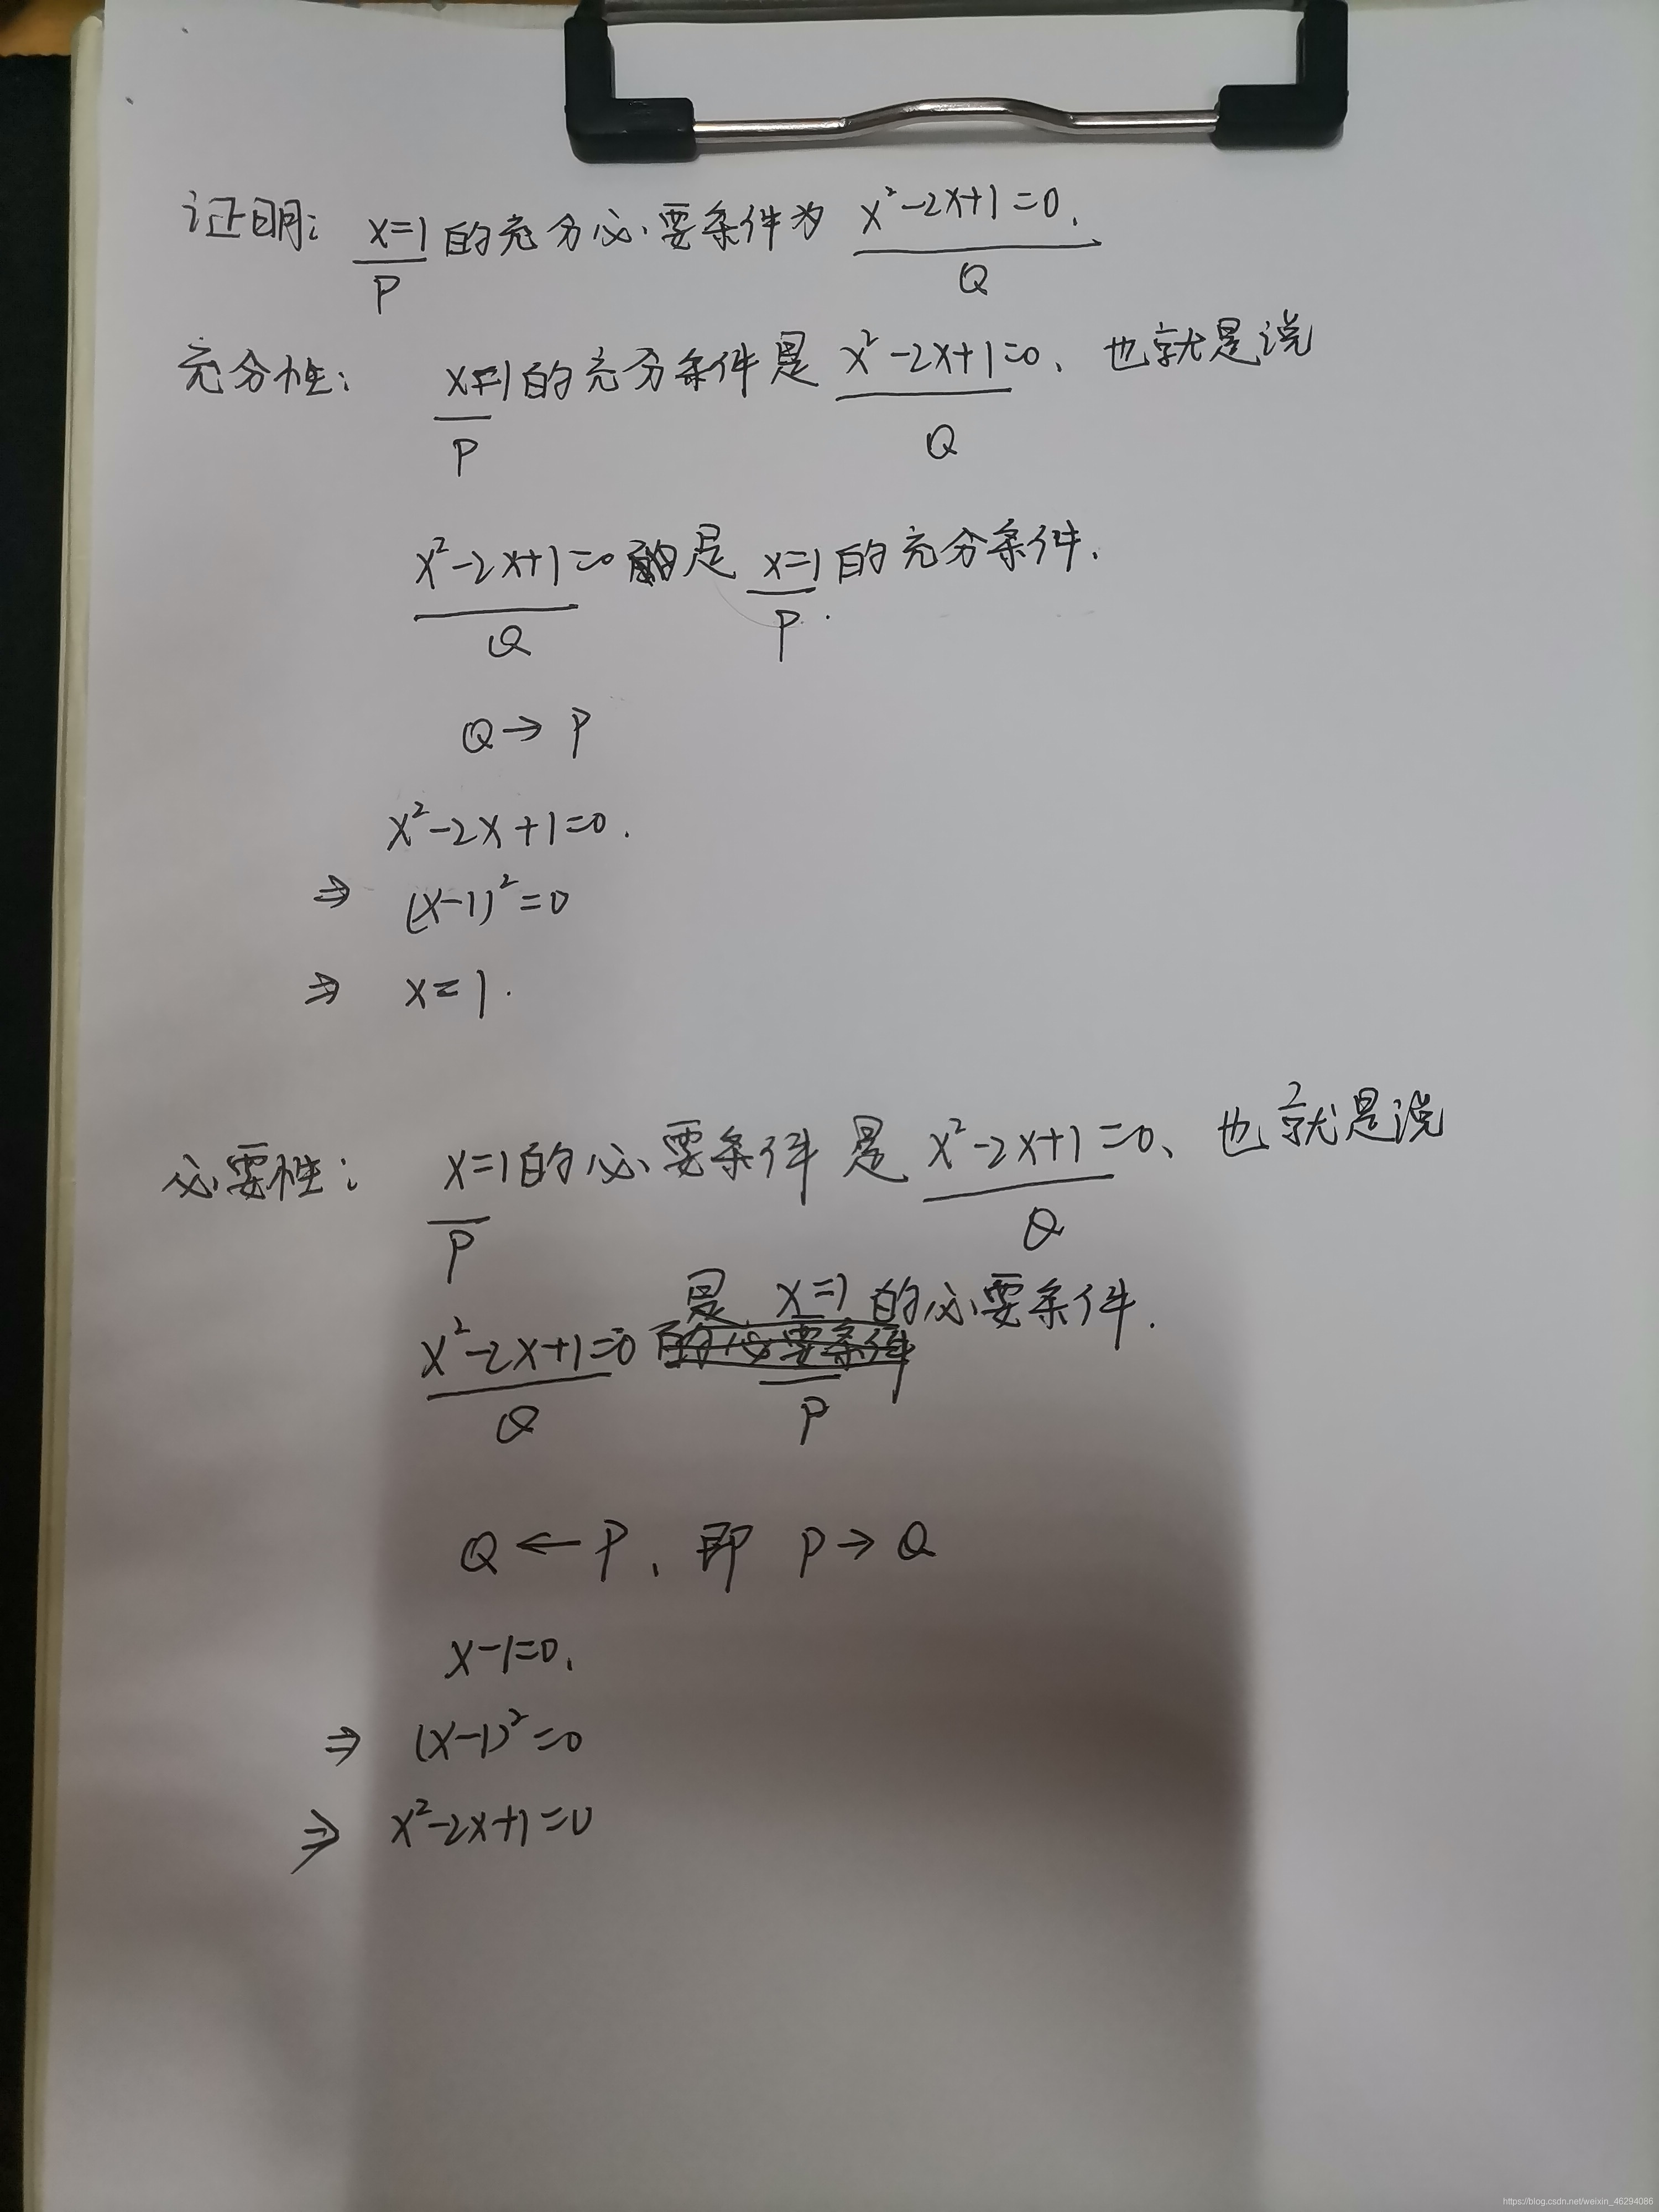 证明: x=1 的充分必要条件为 x²-2x+1=0.
P Q
充分性: x=1 的充分条件是 x²-2x+1=0、也就是说
P Q
x²-2x+1=0 是 x=1 的充分条件.
Q P.
Q→P
x²-2x+1=0.
⇒ (x-1)²=0
⇒ x=1.
必要性: x=1 的必要条件是 x²-2x+1=0、也就是说
P Q
x²-2x+1=0 是 x=1 的必要条件.
的必要条件
Q P
Q←P、即 P→Q
x-1=0.
⇒ (x-1)²=0
⇒ x²-2x+1=0
https://blog.csdn.net/weixin_46294086